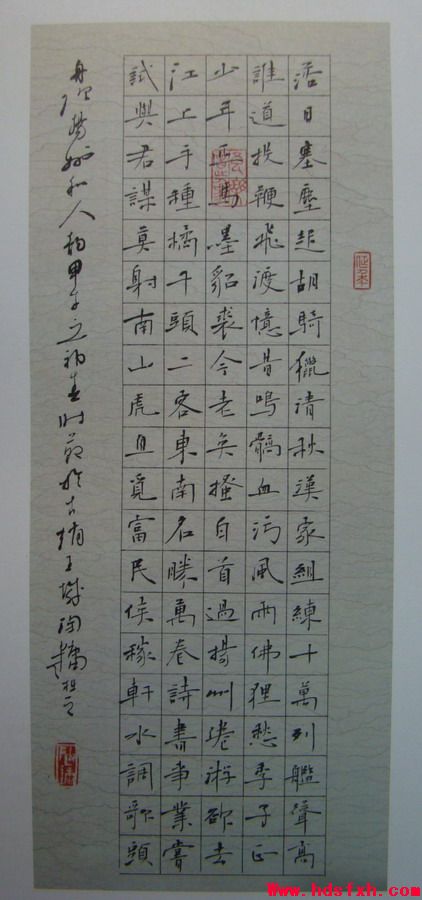 活日塞塵起胡騎獵清秋漢家組練十萬列艦聳高
誰道投鞭飛渡憶昔鳴髇血污風雨佛狸愁季子正
少年匹馬墨貂裘今老矣搔白首過揚州倦游欲去
江上手種橘千頭二客東南名勝萬卷詩書事業嘗
試與君謀莫射南山虎且覓富民侯稼軒水調歌頭
舟次揚州和人韵甲午之初春时節於古
www.hdsfxh.com